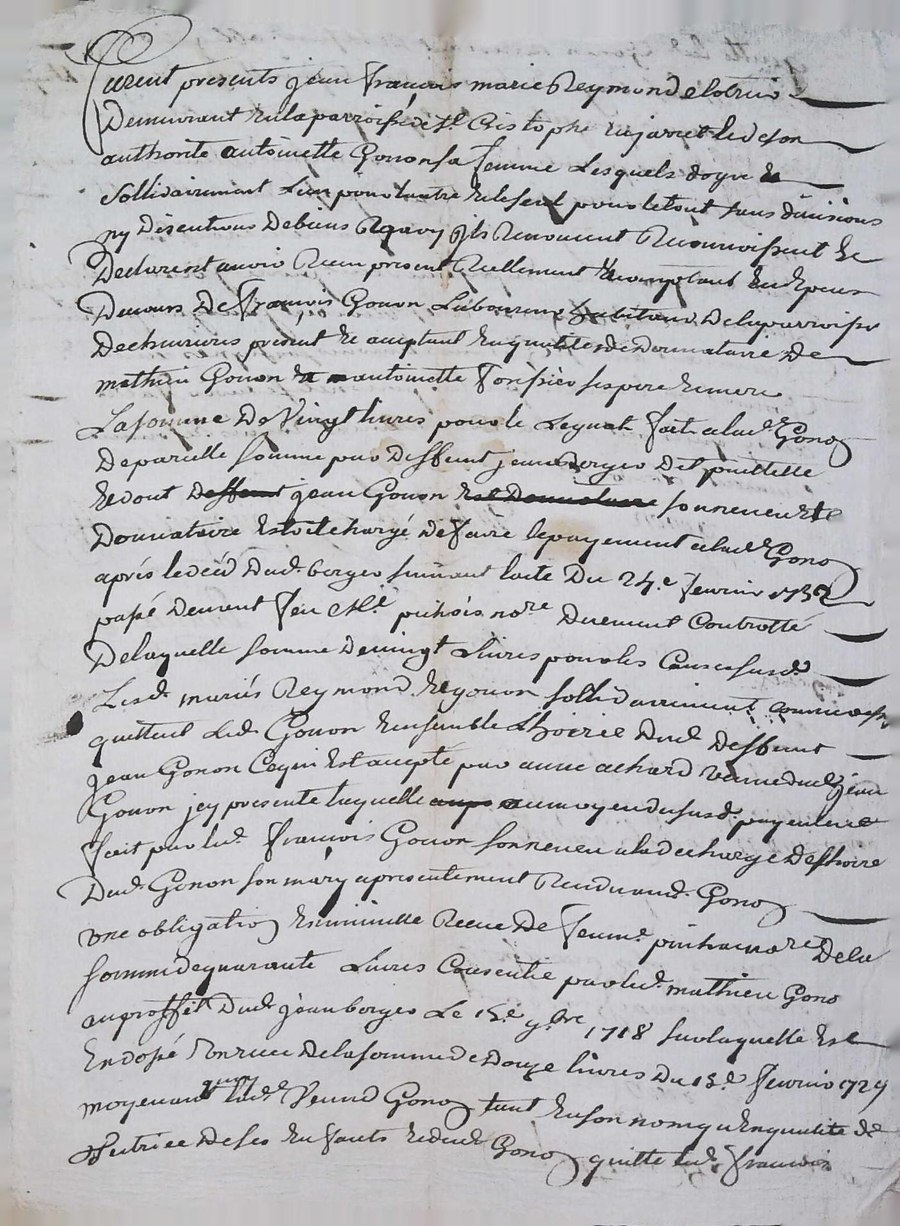 furent presents jean françois marie Reymond
Demeurant en la parroisse de St Cristophe en jarret led de son
authorité antoinette Gonon sa femme Lesquels de gre &
Sollidairement Lun pour lautre et le seul pour le tout sans divisions
ny Disentions De biens Renoncent Reconnoissent et
Declarent avoir Receu present Reellement et comptant
De francois Gonon Laboureur habitans De la parroisse
De present et acceptant en qualité de Donnataire De
mathieu Gonon & antoinette ses pere et mere
La somme De Vingt livres pour le Leguat fait a lad.e Gonon
De pareille somme par Deffeunt jean borges
et dont Deffeunt jean Gonon Est Donnataire son neveu &
Donnataire Estoit chargé De faire le payement a lad.e Gonon
aprés le déced Dud. borges suivant lacte Du 24.e fevrier 1732
passé Devent feu M.e pichois no.re Duement Controllé
De laquelle somme De vingt Livres pour les Causes susd.
Lesd. mariés Reymond et gonon sollidairement comme dessus
quittent Led. Gonon Ensemble L'hoirie Dud. Deffeunt
jean Gonon Ce qui Est accepté par anne achard Veuve dud. jean
Gonon jcy presente laquelle au moyen du susd. payement
fait par led. françois Gonon son neveu a la decharge De l'hoirie
Dud. Gonon son mary a presentement Rendu aud. Gonon
une obligation En minutte Receue De feu m.e no.re De la
somme de quarante Livres Consentie par led. mathieu Gonon
au proffit Dud. jean borges Le 15.e 9.bre 1718 sur laquelle Est
Endossé Un receu De la somme de Douze livres Du 13.e fevrier 1729
moyenant quoy lad.e Veuve Gonon tant En son nom qu'En qualité de
tutrice De ses Enfants et dud. Gonon quitte led. francois